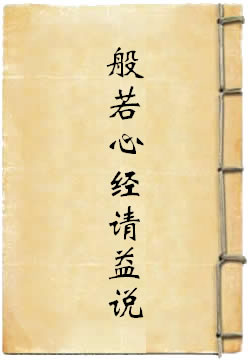 般若心经请益说